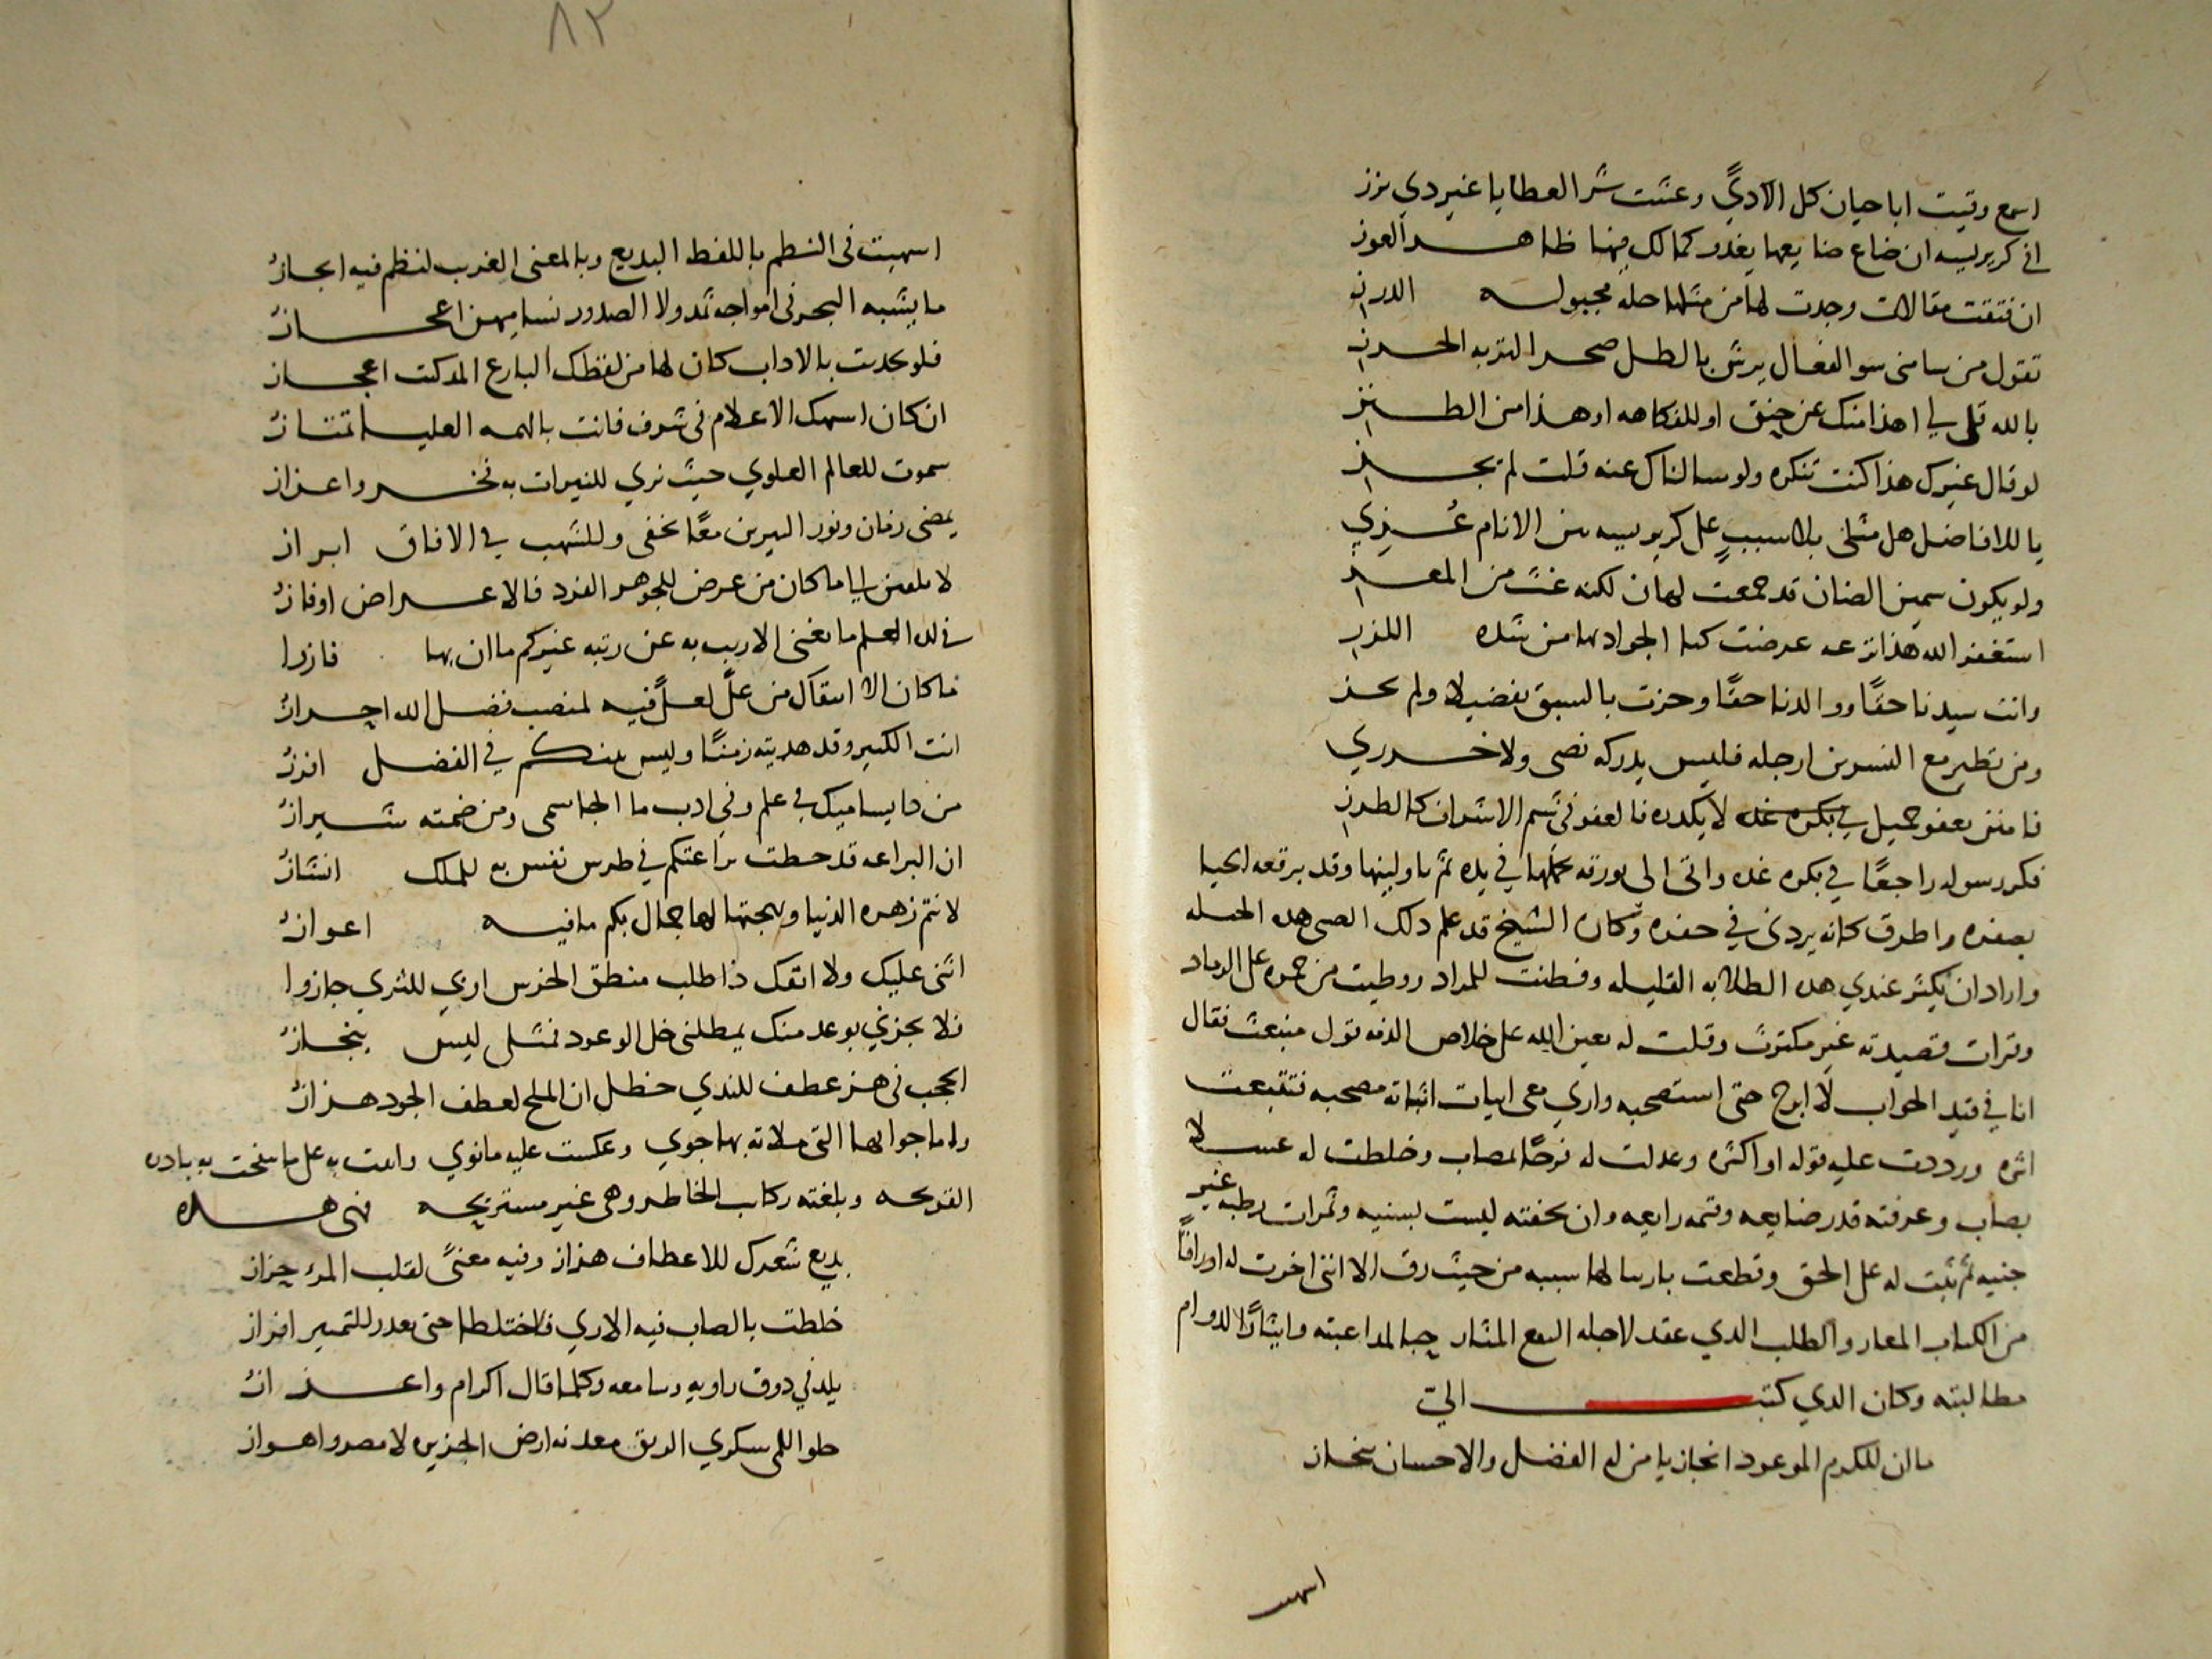 اسمع وقيت اباحيان كل الاذي وعشت شر العطايا غير دي نزز
ان ضاع ضايعها يغدر كمالك منها ظاهر العوز
ان فتقت مقالات وجدت لها من مثلها حله مجبوله الدرز
تقول من سامني سو الفعال يرش بالطل صحر التربه الحرز
بالله قل لي اهذا منك عن حنق او للفكاهه او هذا من الطنز
لو قال غيرك هذا كنت تنكره ولو سالناك عنه قلت لم يجز
يا للافاضل هل مثلي بلا سبب على من الانام عزي
ولو يكون سمين الضان قد جمعت لهان لكنه غث من المعز
استغفر الله هذا نزعه عرضت كبا الجواد بها من شده اللز
وانت سيدنا حقا ووالدنا حقا وحزت بالسبق بفضيلا ولم تحز
ومن تطير مع النسرين ارجله فليس يدركه نصي ولا خدري
فامنن بعفو جميل لا يكدره فالعفو في شيم الاشراف كالطرز
فكر رسوله راجعا في بكره غده واتى الى بورقه في يده ثم ناولنيها وقد برقعه الحيا
بصفره واطرق كانه يردى في حفره وكان الشيخ قد علم ذلك الصبي هذه الحيله
واراد ان يكثر عندي هذه الطلابه القليله وفطنت للمراد ووطيت من جمره على الرماد
وقرات قصيدته غير مكترث وقلت له يعين الله على خلاص الذمه قول منبعث فقال
انا في قيد الجواب لا ابرح حتى استصحبه واري معي ابيات اثباته مصحبه فتتبعت
اثره ورددت عليه قوله او اكثره وعدلت له نوحا لمصاب وخلطت له عسلا
بصاب وعرفته قدر ضايعه وقيمه رايعه وان تحفته ليست بسنيه وثمرات رطبه غير
جنيه ثم ثبت له على الحق وقطعت بارسالها سببه من حيث رق الا انني اخرت له اوراقا
من الكتاب المعار والطلب الذي عقد لاجله النقع المثار حبا لمداعبته وايثارا لدوام
مطالبته وكان الذي كتب الي
ما ان للكرم الموعود انجاز يا من له الفضل والاحسان ينحاز
اسهب
٨٢
اسهبت في النظم باللفظ البديع وبالمعنى الغريب لنظم فيه ايجاز
ما يشبه البحر في امواجه ثمد ولا الصدور تساميهن اعجاز
فلو تحديت بالاداب كان لها من لفظك البارع المدكت اعجاز
ان كان اسمك الاعلام في شرف فانت بالهمه العليا تمتاز
سموت للعالم العلوي حيث نري للنيرات به فخر واعزاز
يمضي زمان ونور النيرين معا يخفى وللشهب في الافاق ابراز
لا ما كان من عرض للجوهر الفرد فالاعراض اوفاز
في لذه العلم ما يغني الاريب به عن رتبه غيركم ما ان بها فازوا
فما كان الا انتقال من علي لعلي فيه لمنصب فضل الله احراز
انت الكبير وقد هديته زمنا وليس منكم في الفضل
من ذا يساميك في علم وفي ادب ما الجا سمى ومن ضمته شيراز
ان اليراعه قد حطت براعتكم في طرس نفس به للملك انشاز
لا نتم زهره الدنيا وبهجتها لها جمال بكم ما فيه اعواز
اثني عليك ولا اتقك ذا طلب منطق الخرس اري للثري جازوا
فلا تجزني بوعد منك يمطلني خل الوعود فمثلي ليس ينجاز
اعجب في هز عطف للندي خطل ان المدح لعطف الجود هزاز
واما جوابها التي ملاته بها جوي وعكست عليه ما نوي واتيت به على ما سنحت به بادره
القريحه وبلغته ركاب الخاطر وهي غير مستريحه فهي هذه
بديع شعرك للاعطاف هزاز وفيه معنى لقلب المرء حزاز
خلطت بالصاب فيه الاري فاختلطا حتى تعذر للتمييز افراز
يلد في ذوق راويه وسامعه وكلما قال اكرام واعزاز
حلو اللمى سكري الريق معدنه ارض الجزيره لا مصر واهواز